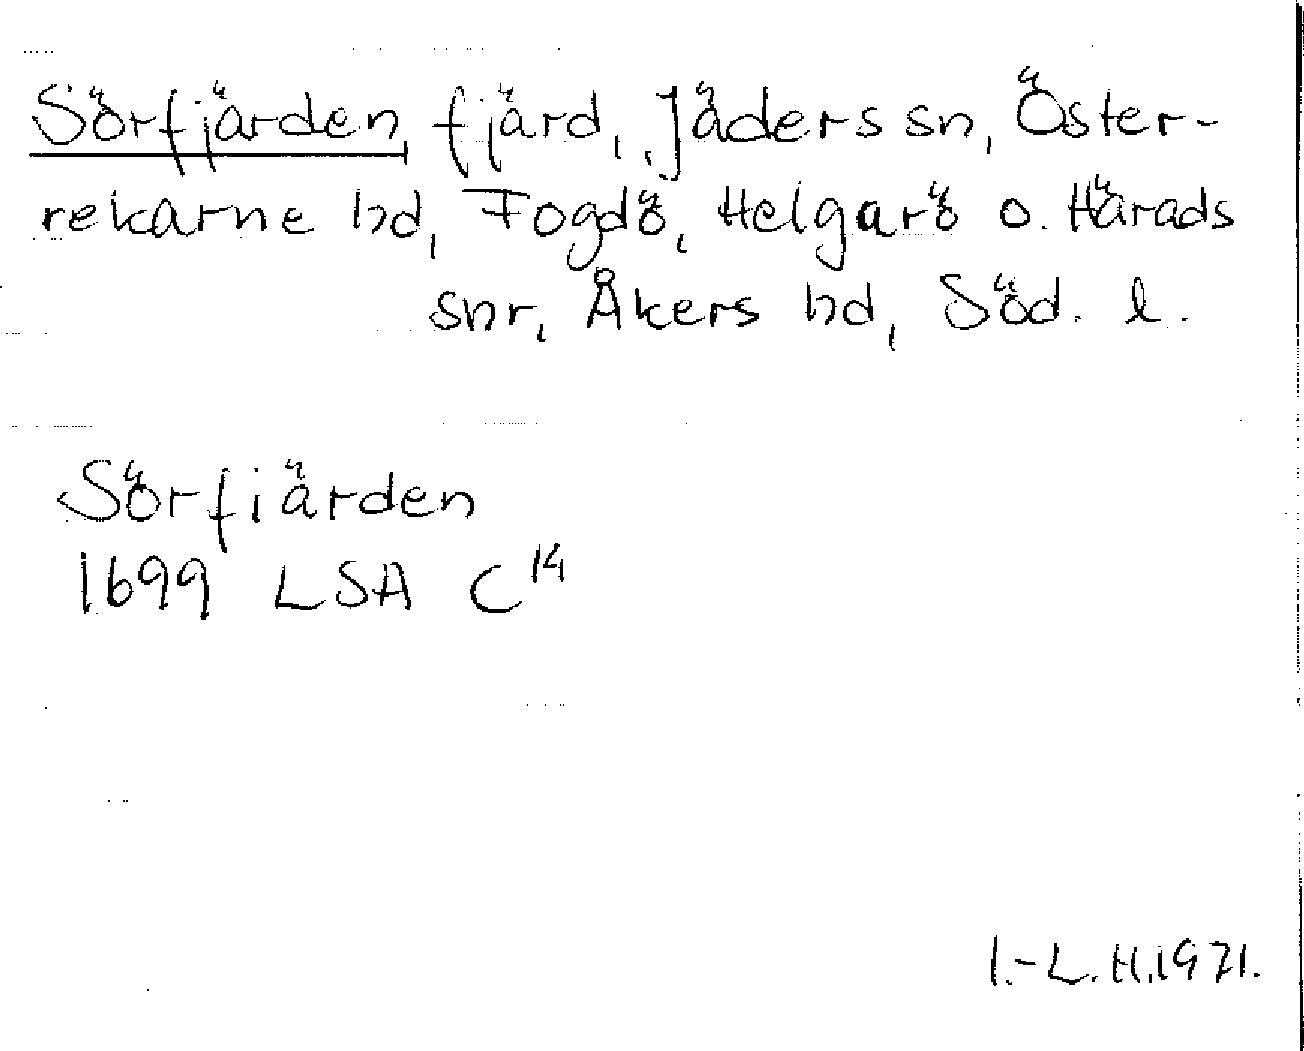 Sörfjärden, fjärd, Jäders sn, Öster-
rekarne hd, Fogdö, Helgarö o. Härads
snr, Åkers hd, Söd. l.
Sörfiärden
1699 LSA C¹⁴
I.-L.H.1971.